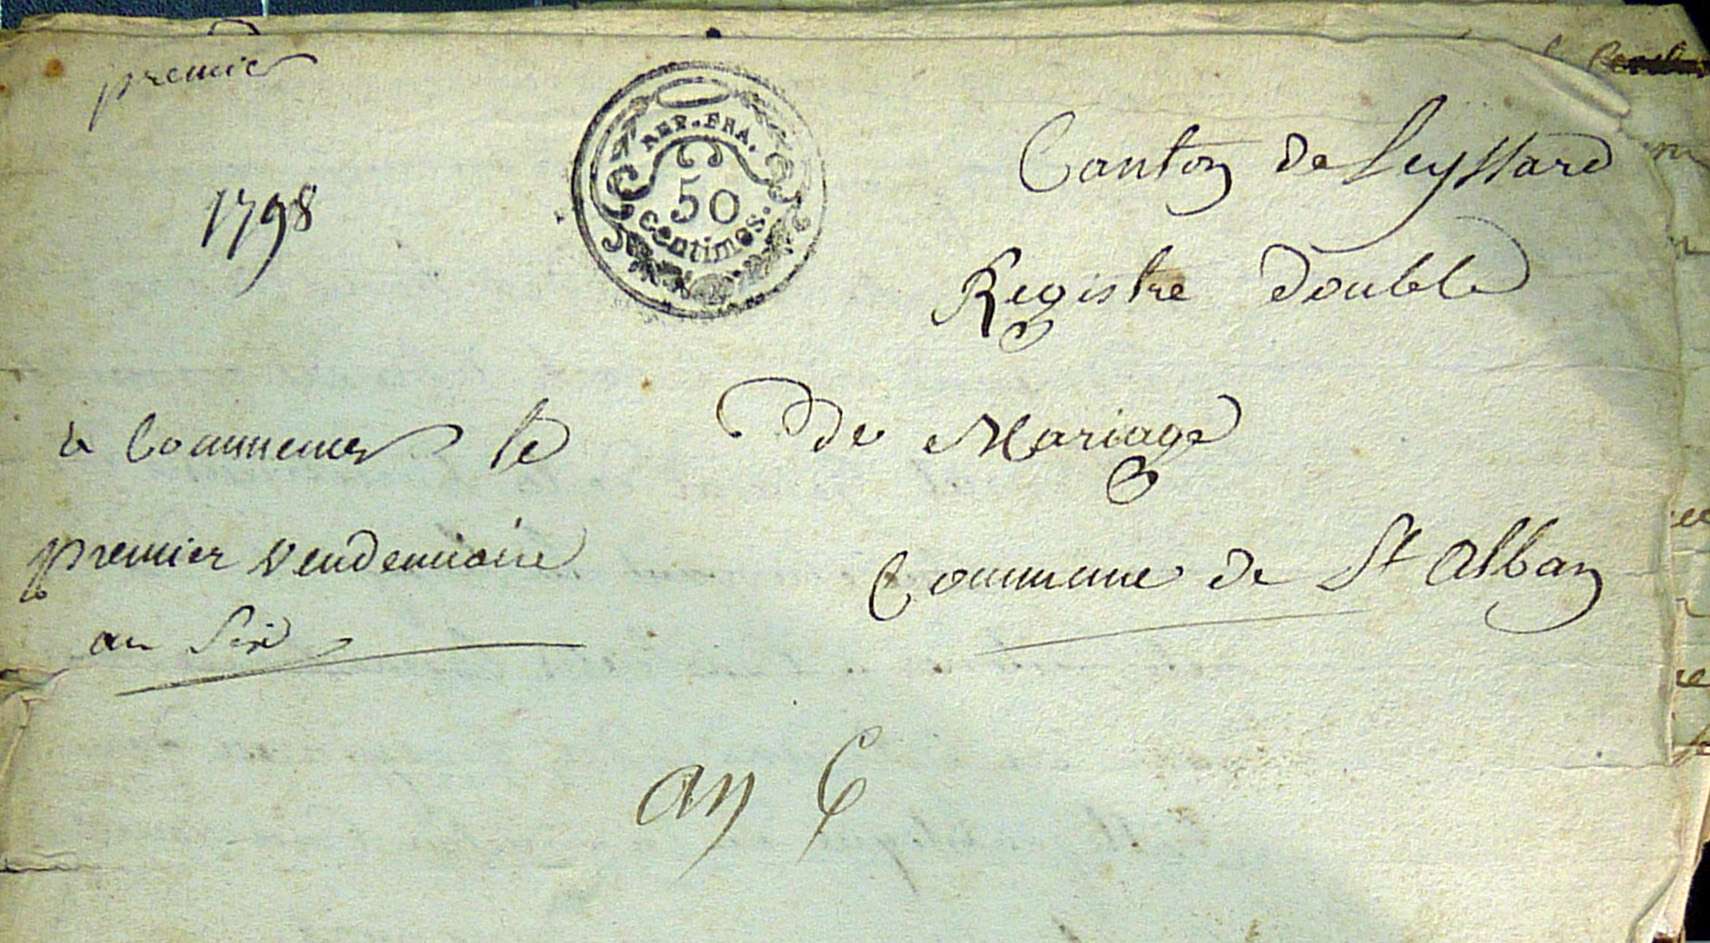 premier
1798
REP. FRA.
50
centimes.
Canton de Leyssard
Registre double
de Mariage
Commune de St alban
a Commencer le
premier vendemiaire
an Six
an 6